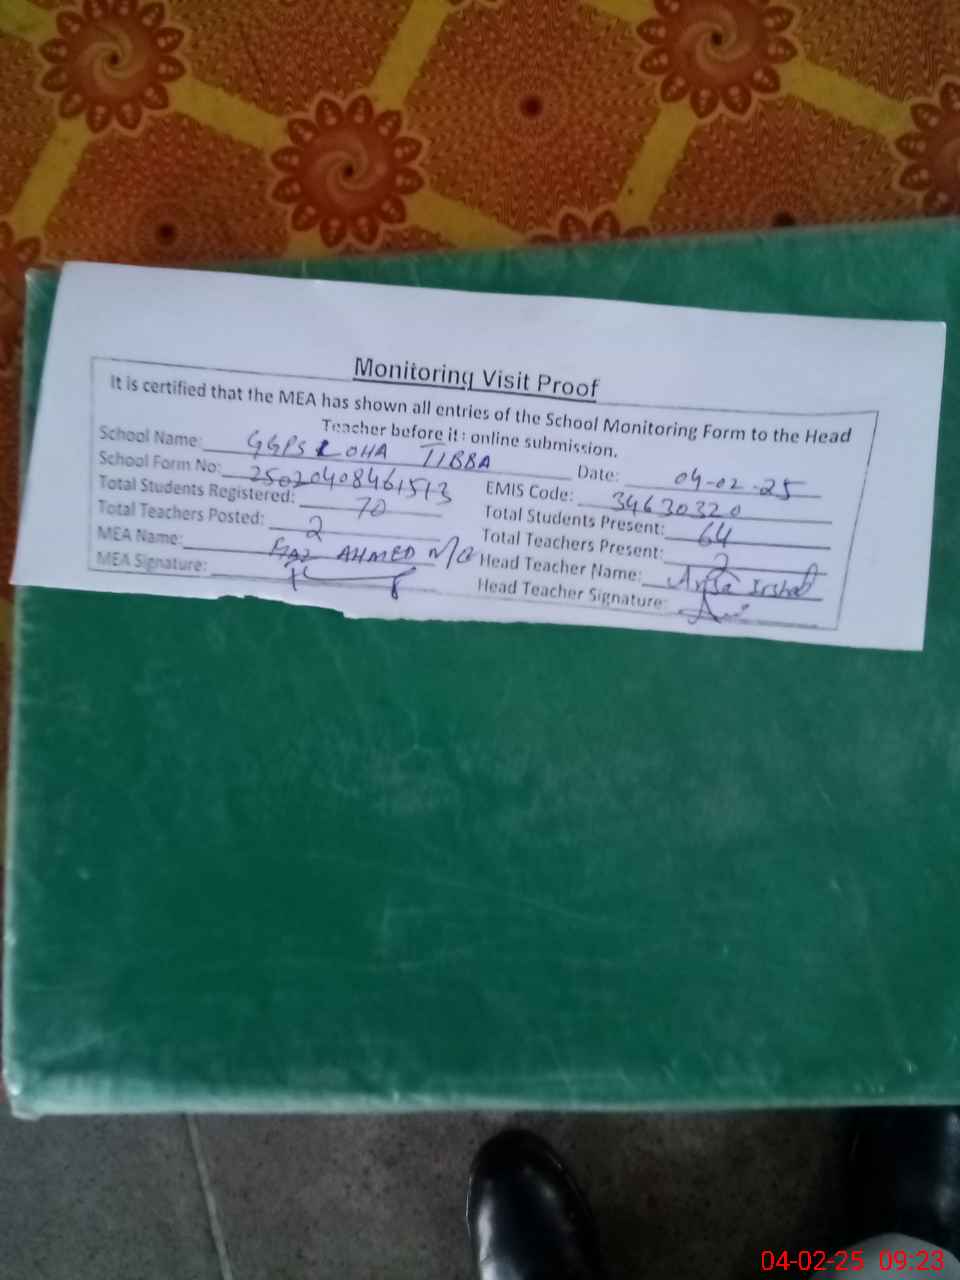 Monitoring Visit Proof
It is certified that the MEA has shown all entries of the School Monitoring Form to the Head
Teacher before it: online submission.
School Name: GGPS LOHA TIBBA Date: 04-02-25
School Form No: 25020408461513 EMIS Code: 34630320
Total Students Registered: 70 Total Students Present: 64
Total Teachers Posted: 2 Total Teachers Present: 2
MEA Name: AHMED Head Teacher Name: Irshad
MEA Signature: Head Teacher Signature:
04-02-25 09:23